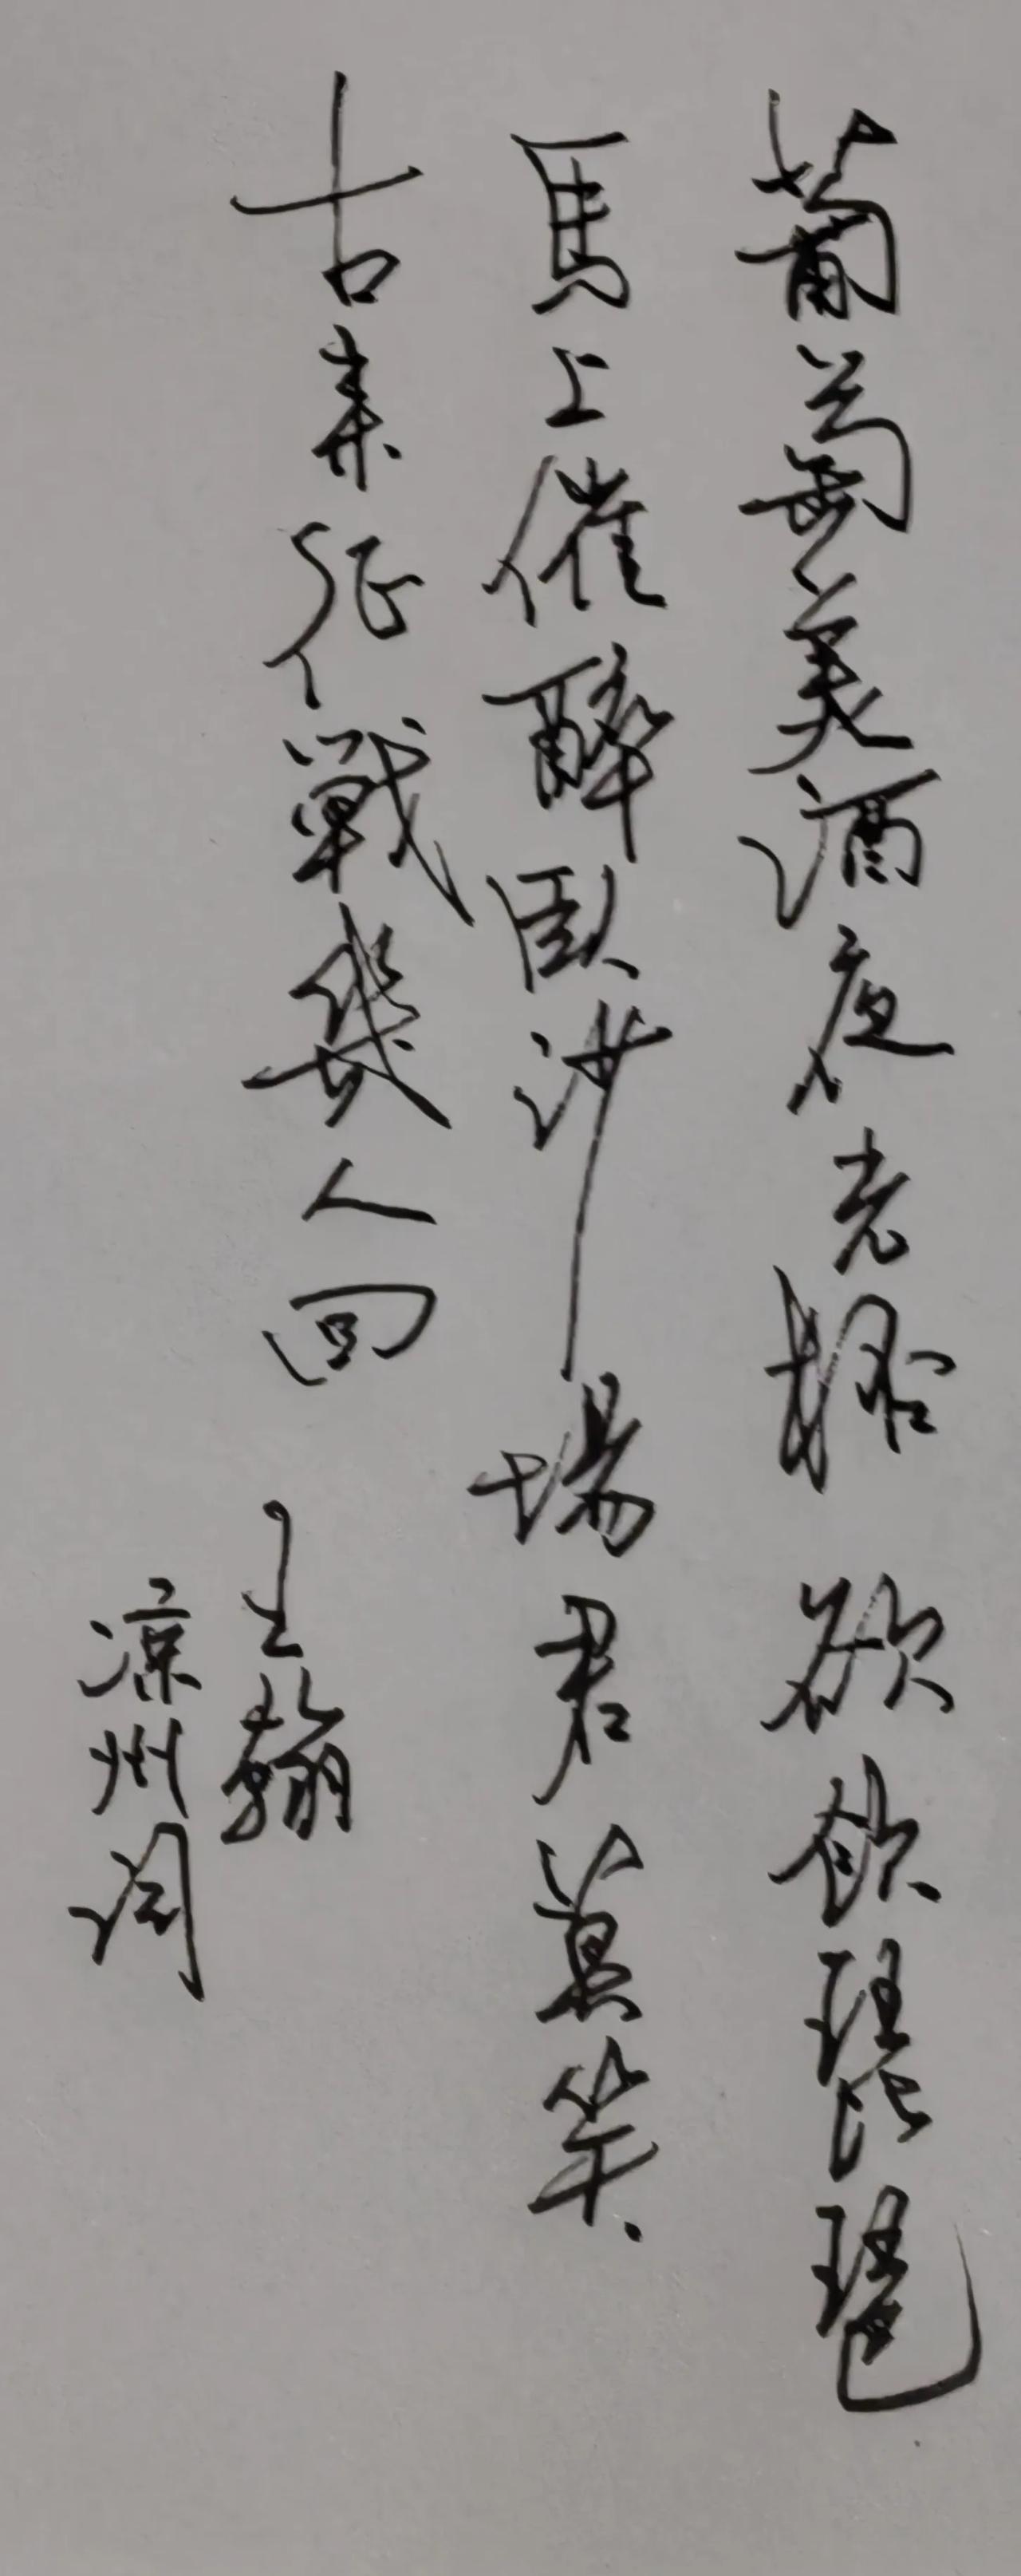 葡萄美酒夜光杯欲飲琵琶
馬上催醉臥沙場君莫笑
古来征戰幾人回
王翰
涼州詞